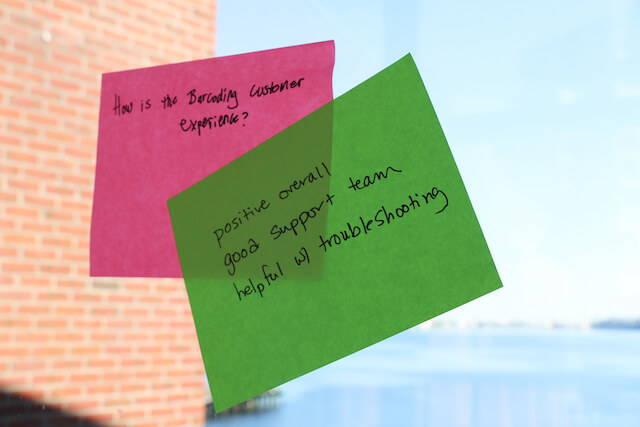 How is the Barcoding Customer
experience?
positive overall
good support team
helpful w/ troubleshooting